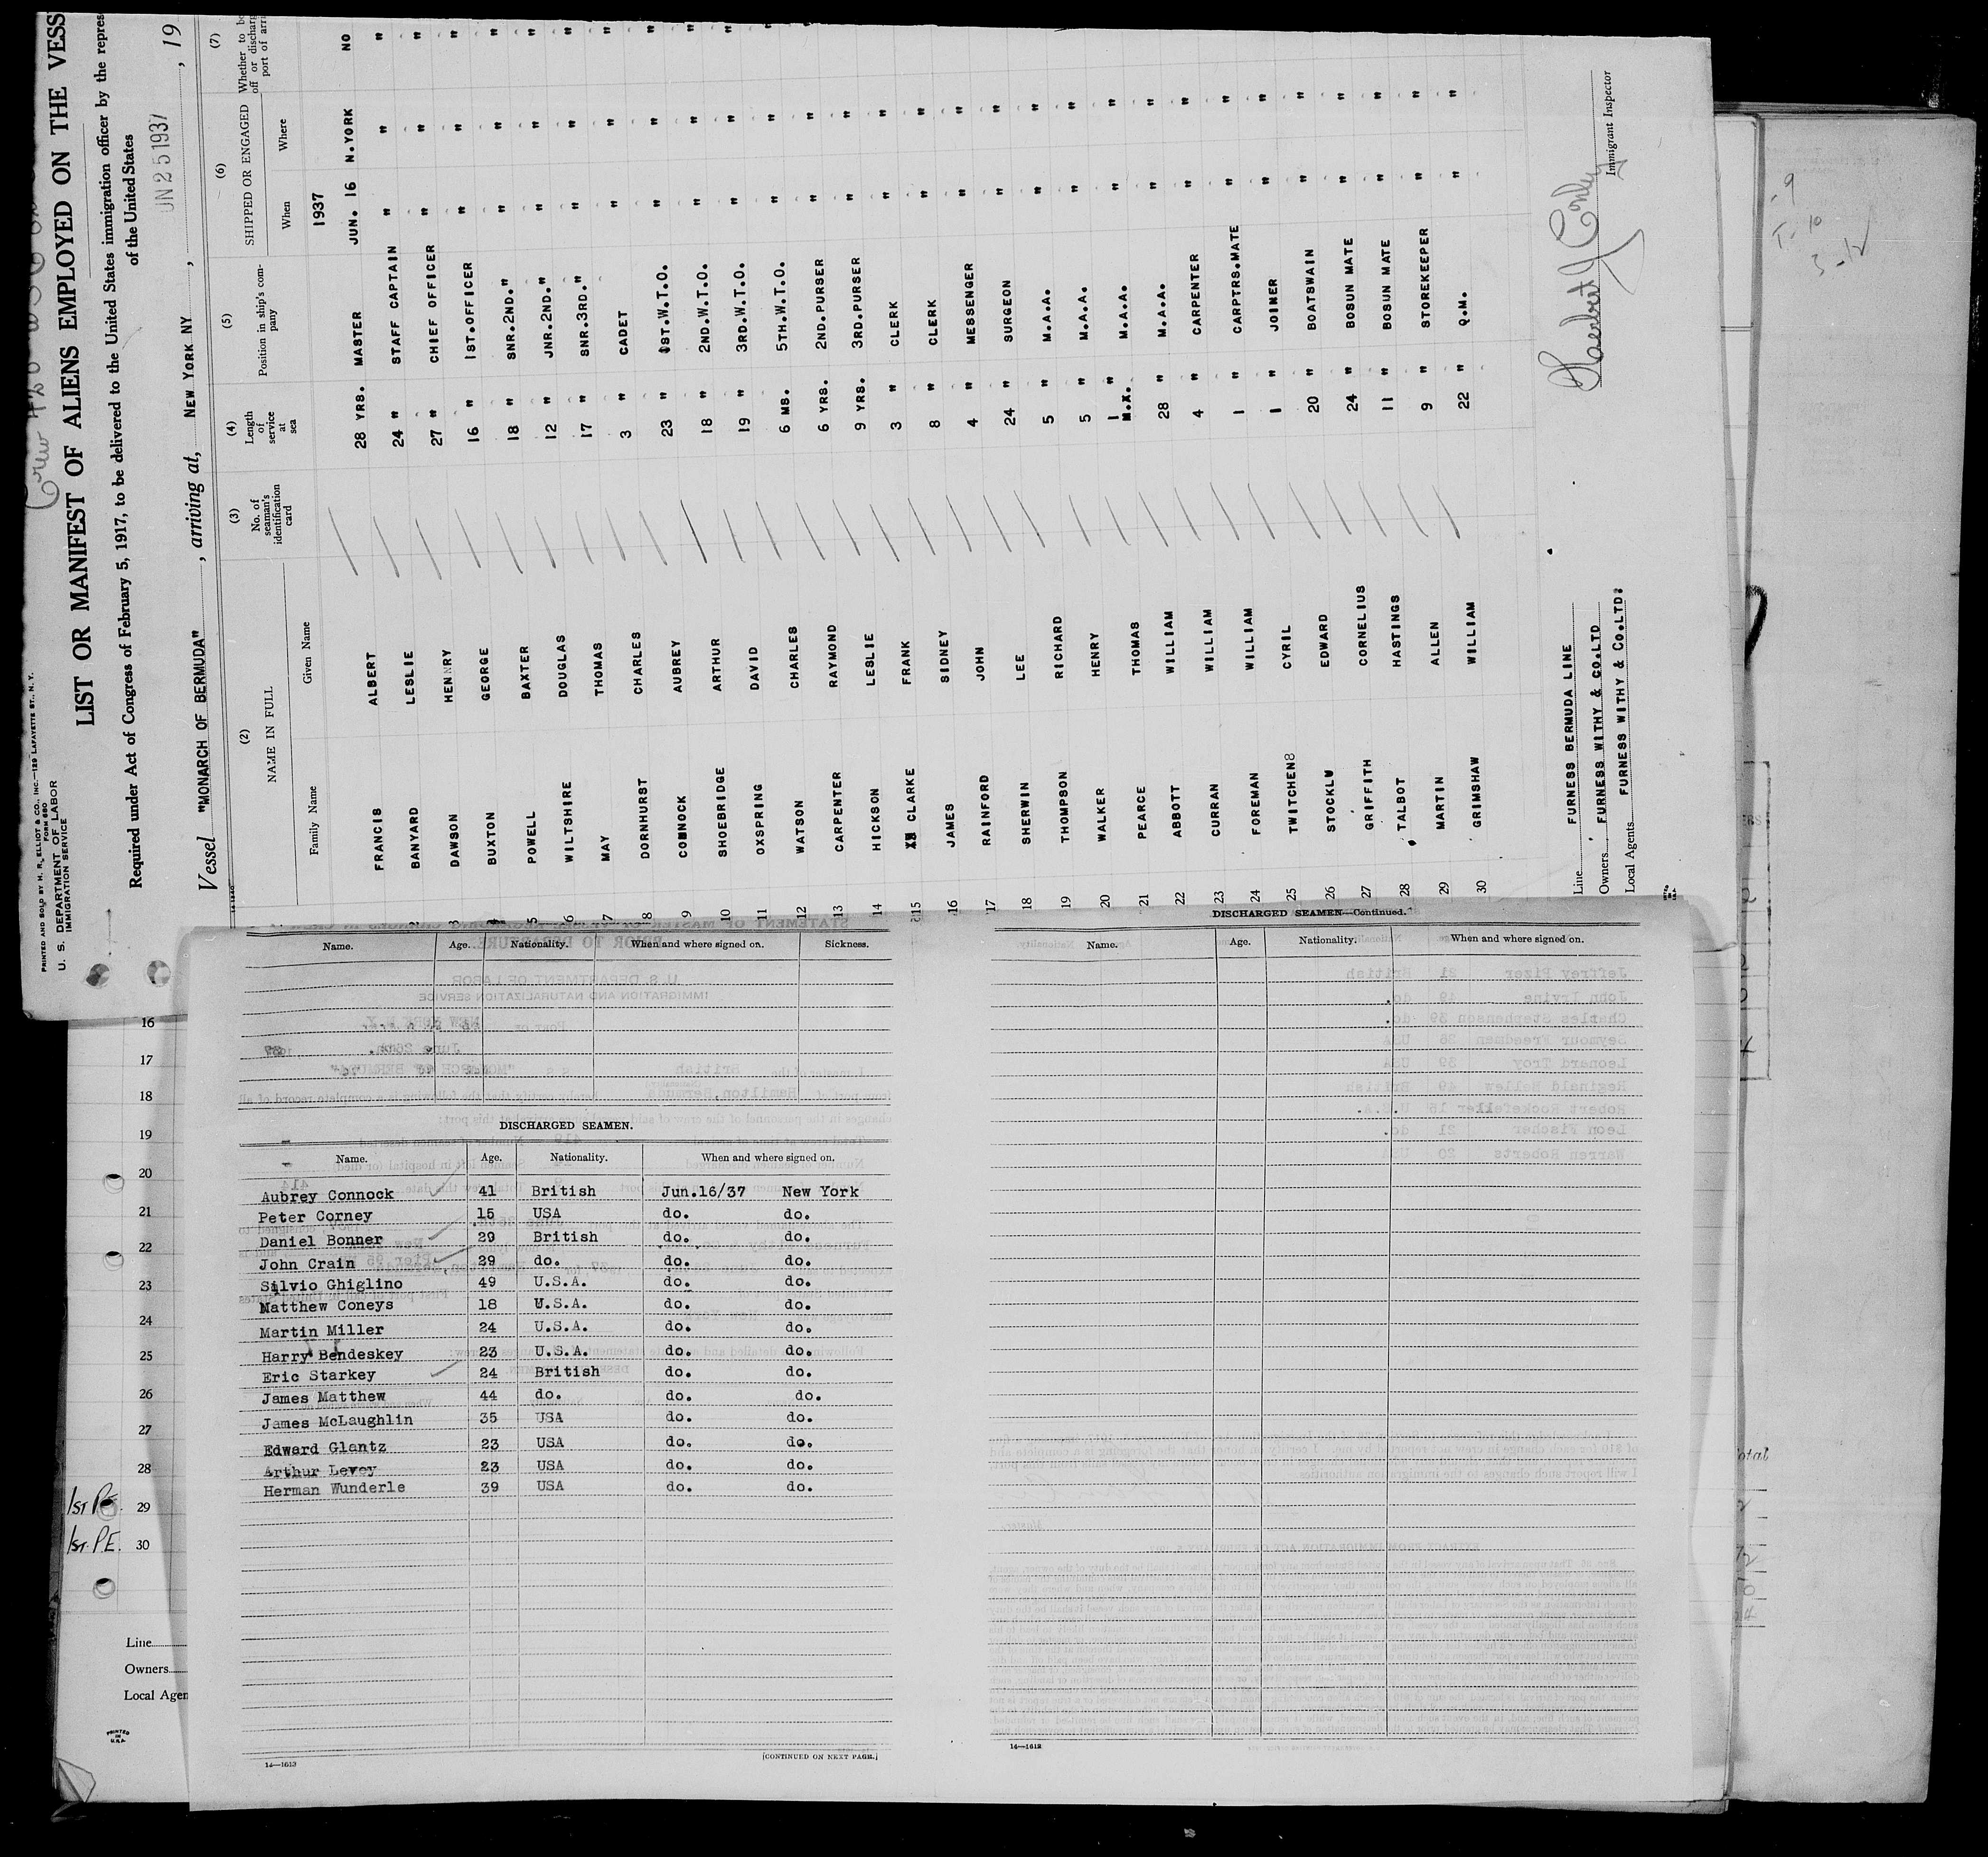 PRINTED AND SOLD BY H. R. ELLIOT & CO., INC.—129 LAFAYETTE ST., N. Y.
FORM 680
U. S. DEPARTMENT OF LABOR
IMMIGRATION SERVICE
Crew
LIST OR MANIFEST OF ALIENS EMPLOYED ON THE VESS
Required under Act of Congress of February 5, 1917, to be delivered to the United States immigration officer by the repres
of the United States
Vessel "MONARCH OF BERMUDA", arriving at, NEW YORK NY, UN 25 1937, 19
(2) (3) (4) (5) (6) (7)
NAME IN FULL No. of seaman's identification card Length of service at sea Position in ship's company SHIPPED OR ENGAGED Whether to be off or discharg port of arri
Family Name Given Name When Where
1937
FRANCIS ALBERT 28 YRS. MASTER JUN. 16 N.YORK NO
2 BANYARD LESLIE 24 " STAFF CAPTAIN " " "
3 DAWSON HENRY 27 " CHIEF OFFICER " " "
4 BUXTON GEORGE 16 " 1ST.OFFICER " " "
5 POWELL BAXTER 18 " SNR.2ND." " " "
6 WILTSHIRE DOUGLAS 12 " JNR.2ND." " " "
7 MAY THOMAS 17 " SNR.3RD." " " "
8 DORNHURST CHARLES 3 " CADET " " "
9 CONNOCK AUBREY 23 " 1ST.W.T.O. " " "
10 SHOEBRIDGE ARTHUR 18 " 2ND.W.T.O. " " "
11 OXSPRING DAVID 19 " 3RD.W.T.O. " " "
12 WATSON CHARLES 6 MS. 5TH.W.T.O. " "
13 CARPENTER RAYMOND 6 YRS. 2ND.PURSER " "
14 HICKSON LESLIE 9 YRS. 3RD.PURSER " "
15 CLARKE FRANK 3 " CLERK " "
16 JAMES SIDNEY 8 " CLERK " "
17 RAINFORD JOHN 4 " MESSENGER " "
18 SHERWIN LEE 24 " SURGEON " "
19 THOMPSON RICHARD 5 " M.A.A. " "
20 WALKER HENRY 5 " M.A.A. " "
21 PEARCE THOMAS 1 " M.A.A. " "
22 ABBOTT WILLIAM 28 " M.A.A. " "
23 CURRAN WILLIAM 4 " CARPENTER " "
24 FOREMAN WILLIAM 1 " CARPTRS.MATE " "
25 TWITCHEN CYRIL 1 " JOINER " "
26 STOCKLW EDWARD 20 " BOATSWAIN " "
27 GRIFFITH CORNELIUS 24 " BOSUN MATE " "
28 TALBOT HASTINGS 11 " BOSUN MATE " "
29 MARTIN ALLEN 9 " STOREKEEPER " "
30 GRIMSHAW WILLIAM 22 " Q.M. " "
Line FURNESS BERMUDA LINE
Owners FURNESS WITHY & CO.LTD
Local Agents FURNESS WITHY & CO.LTD.
Immigrant Inspector
Name. Age. Nationality. When and where signed on. Sickness.
DISCHARGED SEAMEN.
Name. Age. Nationality. When and where signed on.
Aubrey Connock 41 British Jun.16/37 New York
Peter Corney 15 USA do. do.
Daniel Bonner 29 British do. do.
John Crain 29 do. do. do.
Silvio Ghiglino 49 U.S.A. do. do.
Matthew Coneys 18 U.S.A. do. do.
Martin Miller 24 U.S.A. do. do.
Harry Bendeskey 23 U.S.A. do. do.
Eric Starkey 24 British do. do.
James Matthew 44 do. do. do.
James McLaughlin 35 USA do. do.
Edward Glantz 23 USA do. do.
Arthur Levey 23 USA do. do.
Herman Wunderle 39 USA do. do.
14—1613
[CONTINUED ON NEXT PAGE.]
DISCHARGED SEAMEN—Continued.
Name. Age. Nationality. When and where signed on.
14—1613
16
17
18
19
20
21
22
23
24
25
26
27
28
1st P.E. 29
1st. P.E. 30
Line
Owners
Local Agen
PRINTED IN U.S.A.
otal